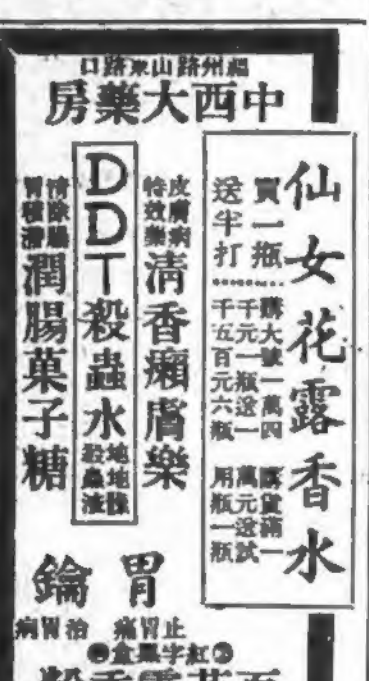 福州路山東路口
中西大藥房
仙女花露香水
買一瓶
送半打
購大號一萬四
千元一瓶送一
千五百元六瓶
購貨滿一
萬元送試
用瓶一瓶
皮膚病
特效藥
清香癩膚樂
DDT殺蟲水
地地愓
殺蟲液
清除腸
胃積滯
潤腸菓子糖
胃鑰
止胃痛
治胃病
紅字黑盒